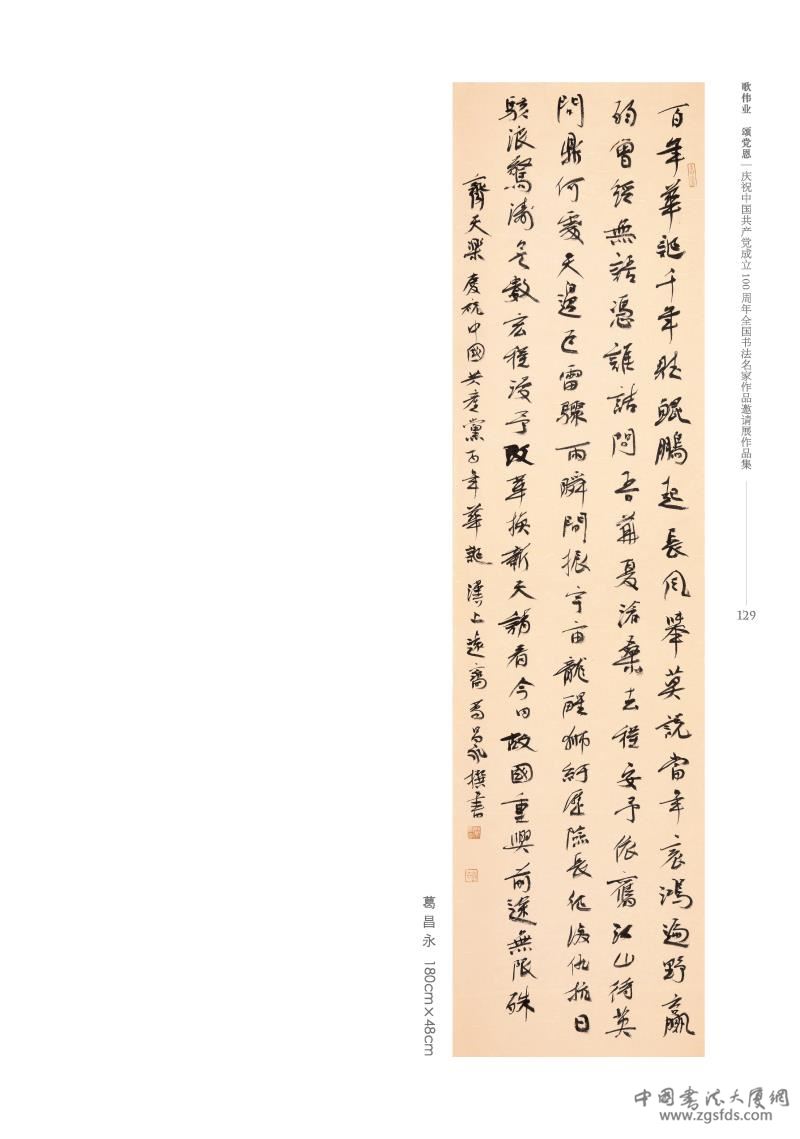 歌伟业 颂党恩 | 庆祝中国共产党成立100周年全国书法名家作品邀请展作品集
129
百年華誕千年鯤鵬起長風舉莫説當年哀鴻遍野羸
弱曾經無語憑誰詰問吾華夏滄桑去程安予依舊江山待英
問鼎何處天邊巨雷驟雨瞬間振宇宙龍醒獅歷險長征復仇抗日
駭浪驚濤數宏程漫予改革換新天請看今日故國重興前途無限殊
齊天樂 慶祝中國共產黨百年華誕 漢上遠齋葛昌永撰書
葛昌永 180cm×48cm
中国書法大廈網
www.zgsfds.com